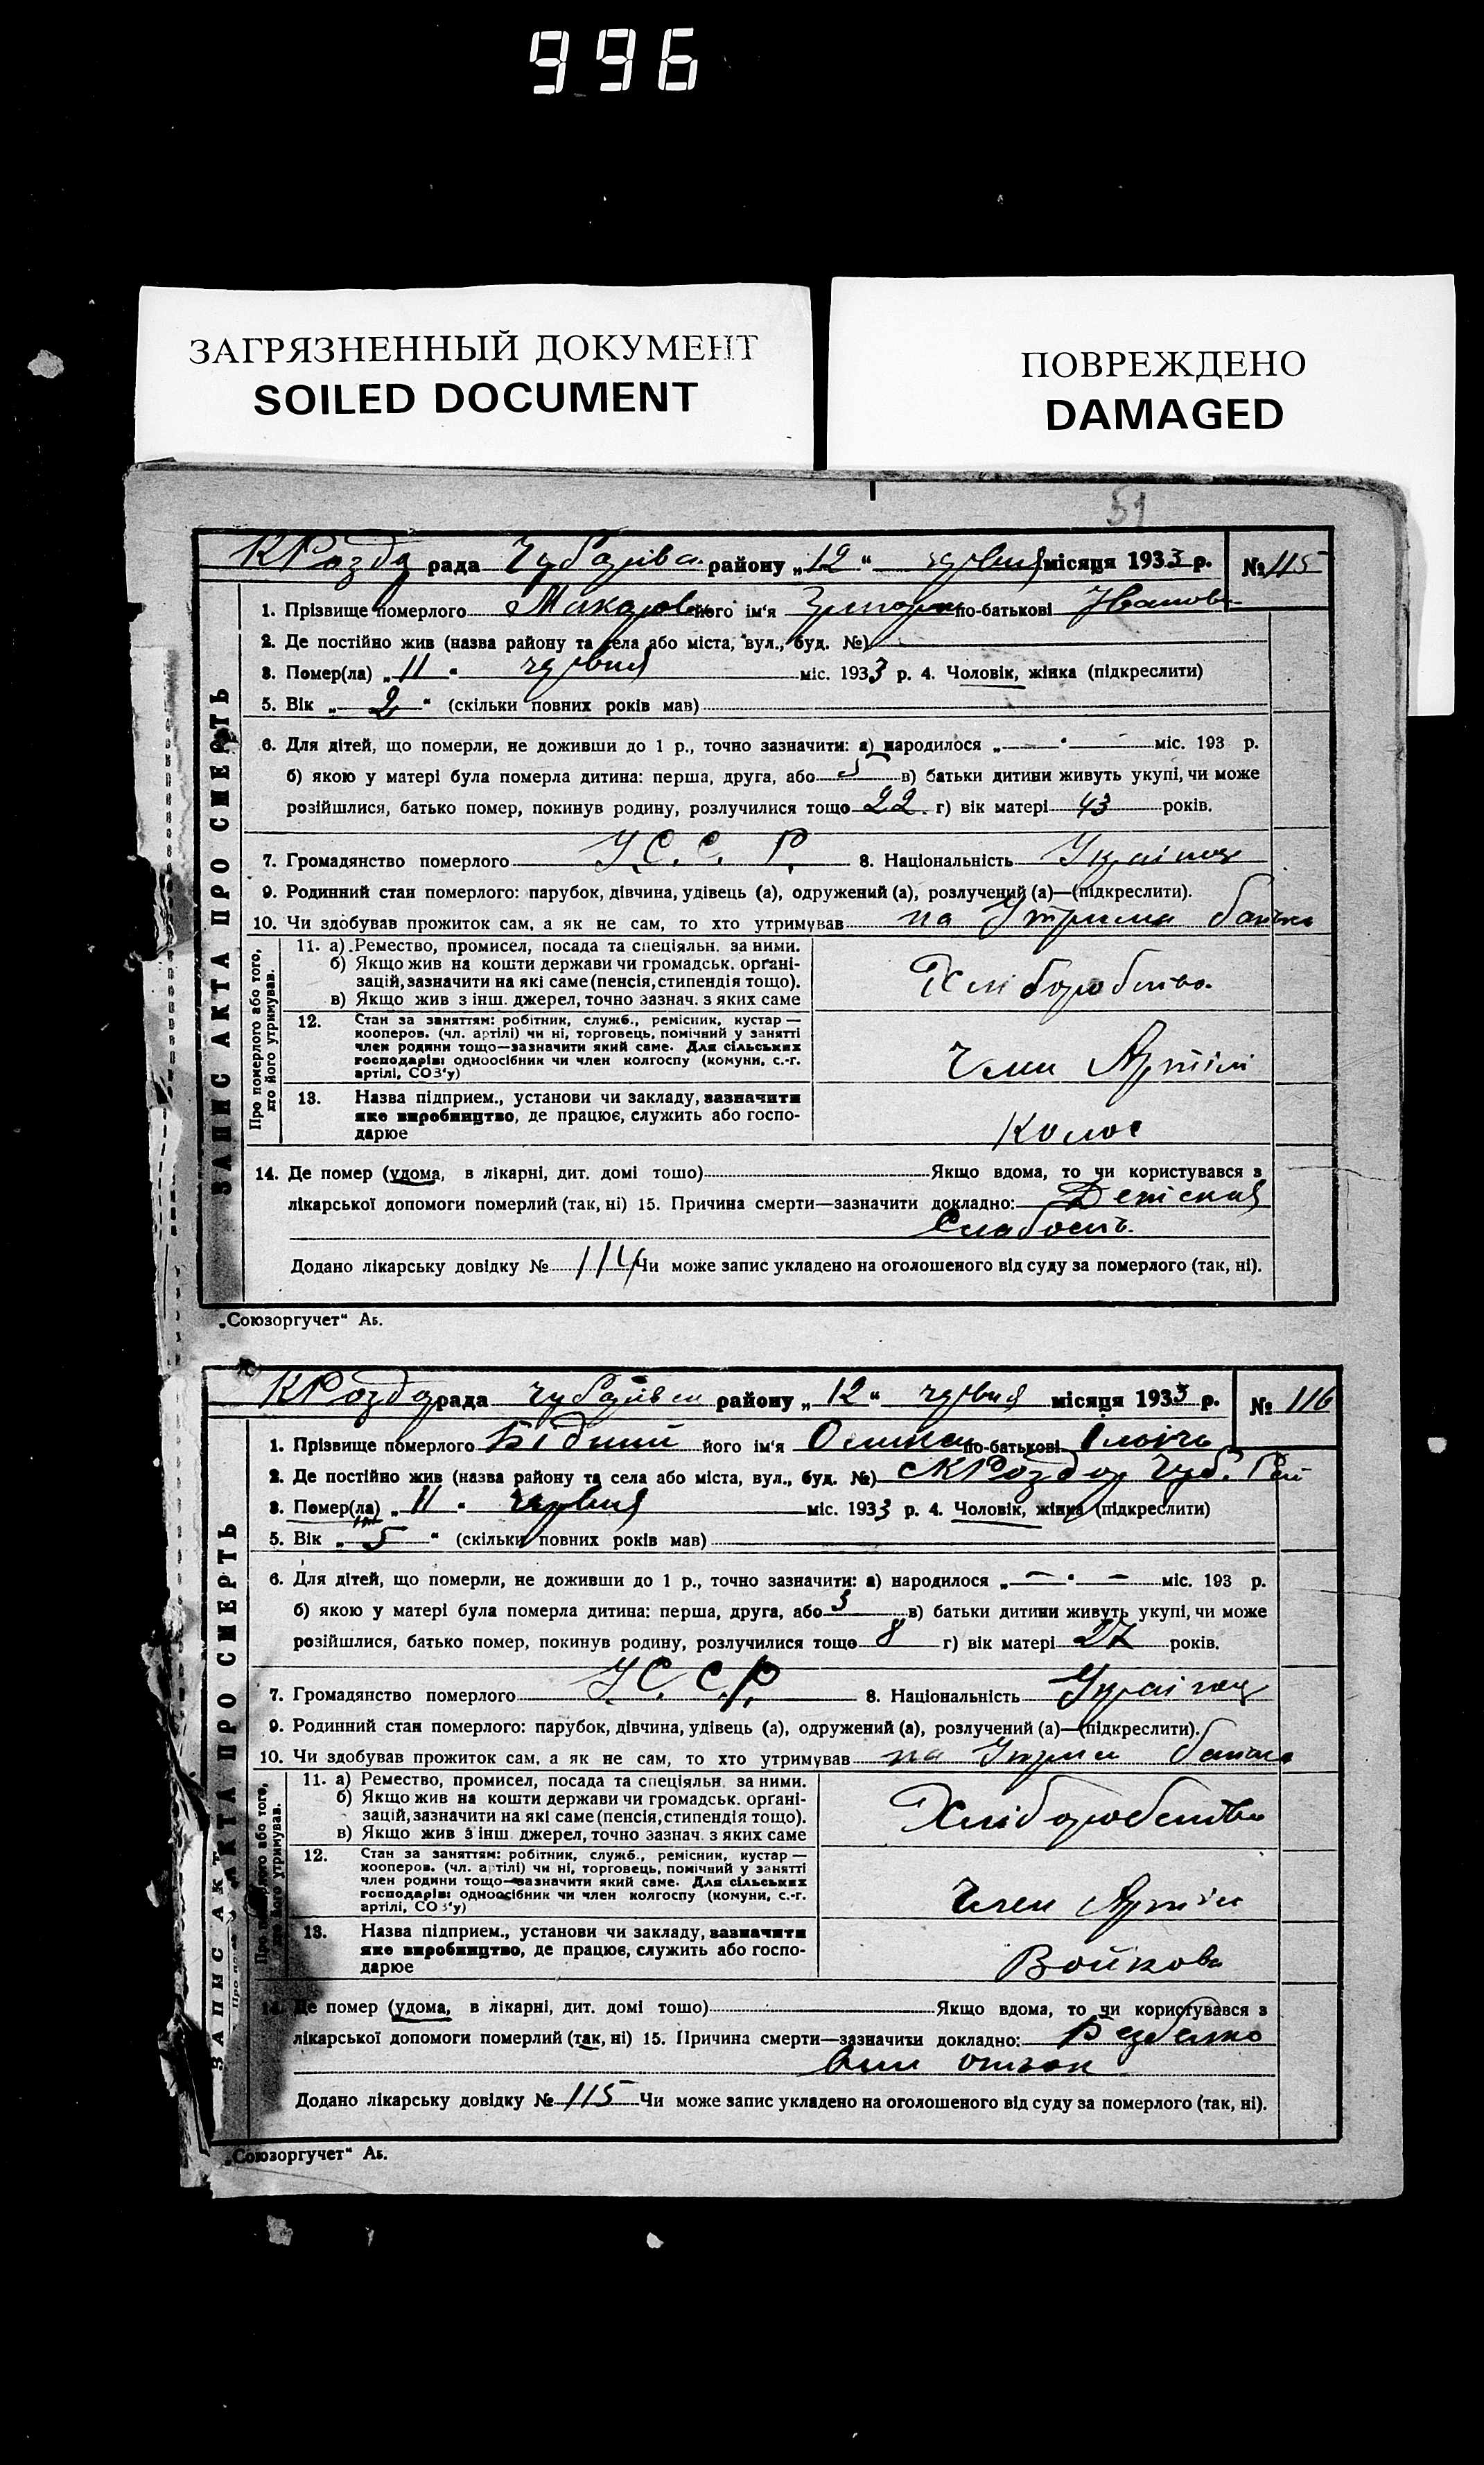 996
ЗАГРЯЗНЕННЫЙ ДОКУМЕНТ
SOILED DOCUMENT
ПОВРЕЖДЕНО
DAMAGED
51
КРозда рада Чубарівсь району „12“ червня місяця 1933 р. № 115
ЗАПИС АКТА ПРО СМЕРТЬ
1. Прізвище померлого Макаров його ім'я по-батькові Иванов
2. Де постійно жив (назва району та села або міста, вул., буд. №)
3. Помер(ла) „11“ червня міс. 1933 р. 4. Чоловік, жінка (підкреслити)
5. Вік „2“ (скільки повних років мав)
6. Для дітей, що померли, не доживши до 1 р., точно зазначити: а) народилося „—“ — міс. 193 р.
б) якою у матері була померла дитина: перша, друга, або 5 в) батьки дитини живуть укупі, чи може
розійшлися, батько помер, покинув родину, розлучилися тощо 22 г) вік матері 43 років.
7. Громадянство померлого У.С.С.Р. 8. Національність Українец
9. Родинний стан померлого: парубок, дівчина, удівець (а), одружений (а), розлучений (а)—(підкреслити).
10. Чи здобував прожиток сам, а як не сам, то хто утримував на Утрима батька
Про померлого або того, хто його утримував.
11. а) Ремество, промисел, посада та спеціяльн. за ними.
б) Якщо жив на кошти держави чи громадськ. органі-
зацій, зазначити на які саме (пенсія, стипендія тощо).
в) Якщо жив з інш. джерел, точно зазнач. з яких саме
Хліборобство
12. Стан за заняттям: робітник, служб., ремісник, кустар—
кооперов. (чл. артілі) чи ні, торговець, помічний у занятті
член родини тощо—зазначити який саме. Для сільських
господарів: одноосібник чи член колгоспу (комуни, с.-г.
артілі, СОЗ'у)
Член Артілі
13. Назва підприєм., установи чи закладу, зазначити
яке виробництво, де працює, служить або госпо-
дарює
Колос
14. Де помер (удома, в лікарні, дит. домі тощо) Якщо вдома, то чи користувався з
лікарської допомоги померлий (так, ні) 15. Причина смерти—зазначити докладно: Детіская
Слабость.
Додано лікарську довідку № 114 Чи може запис укладено на оголошеного від суду за померлого (так, ні).
„Союзоргучет“ Аб.
КРоздо рада Чубарівсь району „12“ червня місяця 1933 р. № 116
ЗАПИС АКТА ПРО СМЕРТЬ
1. Прізвище померлого Бідний його ім'я по-батькові Ілліч
2. Де постійно жив (назва району та села або міста, вул., буд. №) с КРоздор Чуб. Рай
3. Помер(ла) „11“ червня міс. 1933 р. 4. Чоловік, жінка (підкреслити)
5. Вік „5“ (скільки повних років мав)
6. Для дітей, що померли, не доживши до 1 р., точно зазначити: а) народилося „—“ — міс. 193 р.
б) якою у матері була померла дитина: перша, друга, або 3 в) батьки дитини живуть укупі, чи може
розійшлися, батько помер, покинув родину, розлучилися тощо 8 г) вік матері 27 років.
7. Громадянство померлого У.С.С.Р. 8. Національність Українец
9. Родинний стан померлого: парубок, дівчина, удівець (а), одружений (а), розлучений (а)—(підкреслити).
10. Чи здобував прожиток сам, а як не сам, то хто утримував на батька
Про померлого або того, хто його утримував.
11. а) Ремество, промисел, посада та спеціяльн. за ними.
б) Якщо жив на кошти держави чи громадськ. органі-
зацій, зазначити на які саме (пенсія, стипендія тощо).
в) Якщо жив з інш. джерел, точно зазнач. з яких саме
Хліборобство
12. Стан за заняттям: робітник, служб., ремісник, кустар—
кооперов. (чл. артілі) чи ні, торговець, помічний у занятті
член родини тощо—зазначити який саме. Для сільських
господарів: одноосібник чи член колгоспу (комуни, с.-г.
артілі, СОЗ'у)
Член Артілі
13. Назва підприєм., установи чи закладу, зазначити
яке виробництво, де працює, служить або госпо-
дарює
Войкова
14. Де помер (удома, в лікарні, дит. домі тощо) Якщо вдома, то чи користувався з
лікарської допомоги померлий (так, ні) 15. Причина смерти—зазначити докладно: Безбелко
вий отьок
Додано лікарську довідку № 115 Чи може запис укладено на оголошеного від суду за померлого (так, ні).
„Союзоргучет“ Аб.